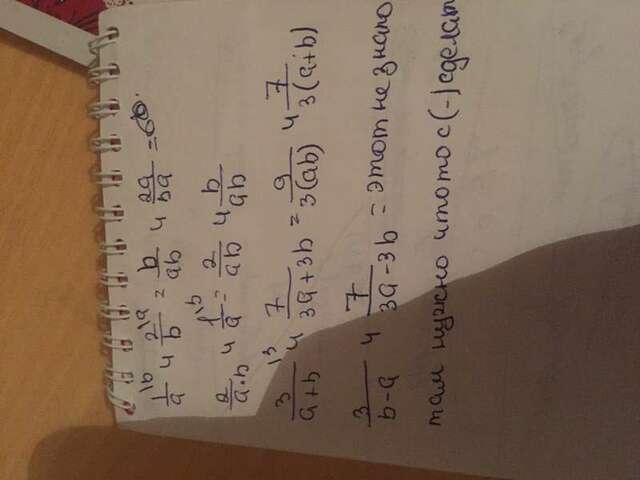 1/a \b и 2/b \a = b/ab и 2a/ba =
2/a·b и 1/a \b = 2/ab и b/ab
3/a+b \3 и 7/3a+3b = 9/3(ab) и 7/3(a+b)
3/b-a и 7/3a-3b = этот не знаю
там нужно чтото с (-) сделат